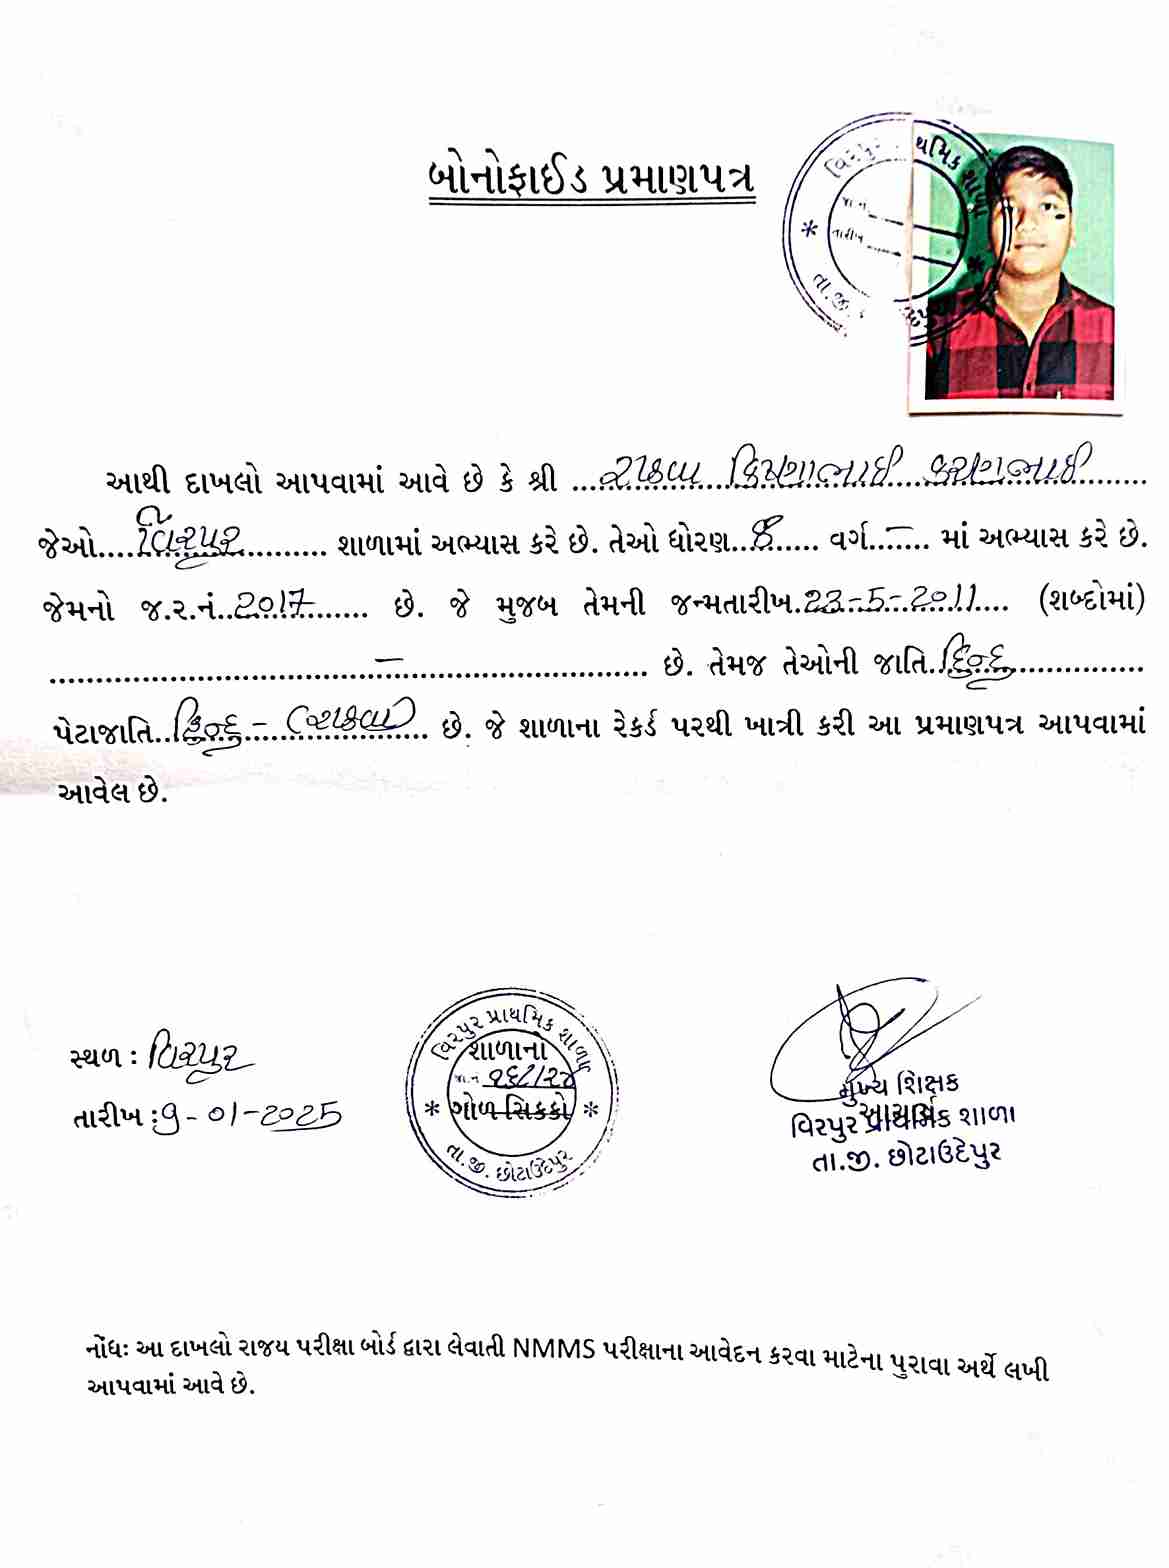 બોનોફાઈડ પ્રમાણપત્ર
વિરપુર થમિક શાળા
જા.ન.
તારીખ
તા.જી. દેપુર
આથી દાખલો આપવામાં આવે છે કે શ્રી ...રાઠવા ... કરણભાઈ......
જેઓ....વિરપુર.......... શાળામાં અભ્યાસ કરે છે. તેઓ ધોરણ..8...... વર્ગ...–... માં અભ્યાસ કરે છે.
જેમનો જ.ર.નં..2017....... છે. જે મુજબ તેમની જન્મતારીખ.23-5-2011.... (શબ્દોમાં)
.......................................–............................... છે. તેમજ તેઓની જાતિ..હિન્દુ...............
પેટાજાતિ..હિન્દુ - (રાઠવા).. છે. જે શાળાના રેકર્ડ પરથી ખાત્રી કરી આ પ્રમાણપત્ર આપવામાં
આવેલ છે.
સ્થળ : વિરપુર
તારીખ :9-01-2025
વિરપુર પ્રાથમિક શાળા
શાળાનો
જા.ન. ૧૬૮/૨૪
* ગોળ સિક્કો *
તા.જી. છોટાઉદેપુર
મુખ્ય શિક્ષક
આચાર્ય
વિરપુર પ્રાથમિક શાળા
તા.જી. છોટાઉદેપુર
નોંધઃ આ દાખલો રાજય પરીક્ષા બોર્ડ દ્વારા લેવાતી NMMS પરીક્ષાના આવેદન કરવા માટેના પુરાવા અર્થે લખી
આપવામાં આવે છે.